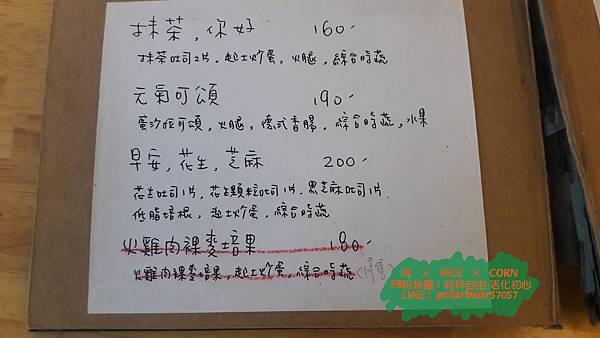 抹茶，你好 160-
抹茶吐司2片，起士炒蛋，火腿，綜合時蔬
元氣可頌 190-
蛋沙拉可頌，火腿，德式香腸，綜合時蔬，水果
早安，花生，芝麻 200-
花生吐司1片，花生顆粒吐司1片，黑芝麻吐司1片
低脂培根，起士炒蛋，綜合時蔬
火雞肉裸麥培果 180-
火雞肉裸麥培果，起士炒蛋，綜合時蔬
× RICE × CORN
FB粉絲團：純粹自由 活化初心
LINE：polarbear57057